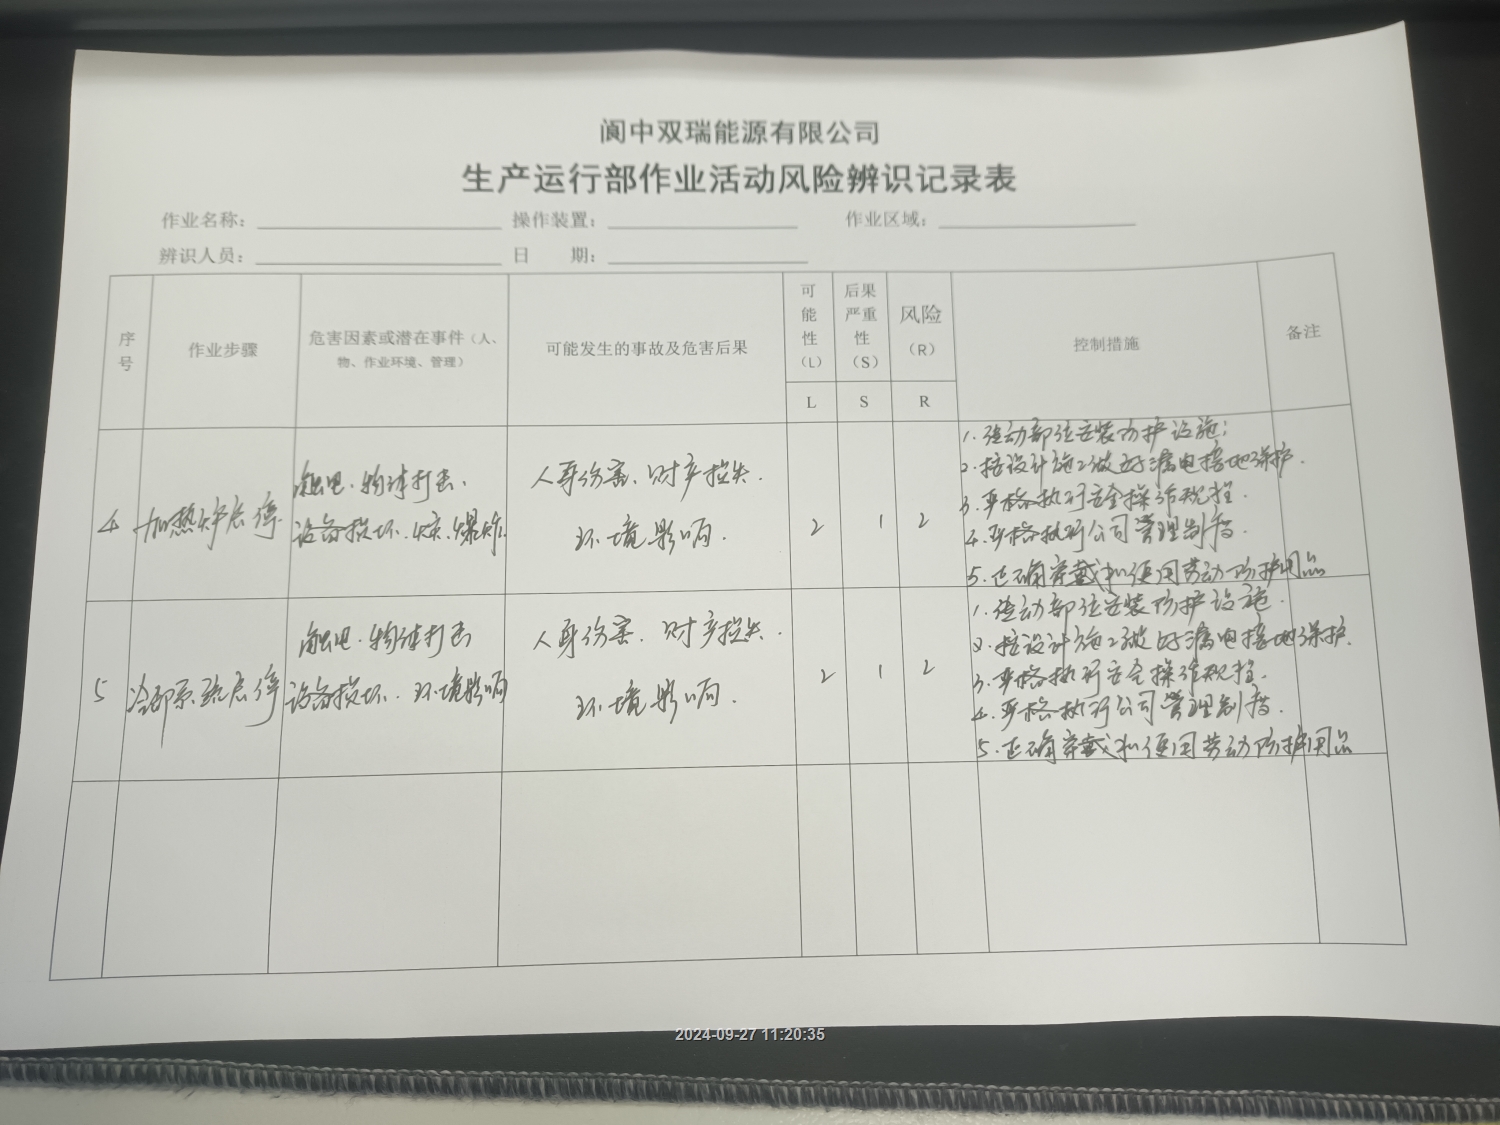 阆中双瑞能源有限公司
生产运行部作业活动风险辨识记录表
作业名称： 操作装置： 作业区域：
辨识人员： 日 期：
序号 作业步骤 危害因素或潜在事件（人、物、作业环境、管理） 可能发生的事故及危害后果 可能性（L） 后果严重性（S） 风险（R） 控制措施 备注
L S R
4 加热炉启停 触电、物体打击、 人身伤害、财产损失、 2 1 2 1.传动部位安装防护设施；
设备损坏、火灾、爆炸 环境影响. 2.按设计施工做好漏电接地保护.
3.严格执行安全操作规程.
4.严格执行公司管理制度.
5.正确穿戴和使用劳动防护用品
5 冷却系统启停 触电、物体打击 人身伤害、财产损失、 2 1 2 1.传动部位安装防护设施.
设备损坏、环境影响 环境影响. 2.按设计施工做好漏电接地保护.
3.严格执行安全操作规程.
4.严格执行公司管理制度.
5.正确穿戴和使用劳动防护用品
2024-09-27 11:20:35